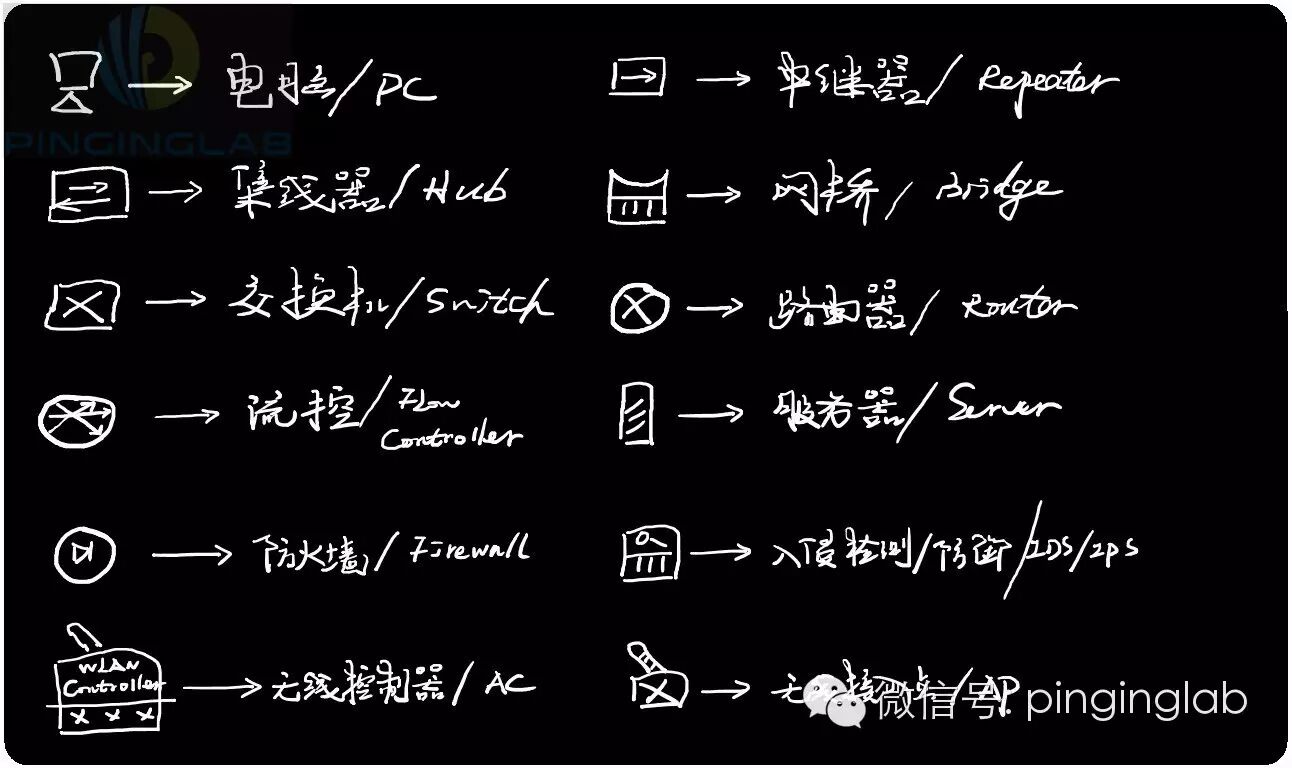 PINGINGLAB
电脑/PC
中继器/Repeater
集线器/Hub
网桥/Bridge
交换机/Switch
路由器/Router
流控/Flow
Controller
服务器/Server
防火墙/Firewall
入侵检测/防御/IDS/IPS
WLAN
Controller
无线控制器/AC
无线接入点/AP
微信号: pinginglab